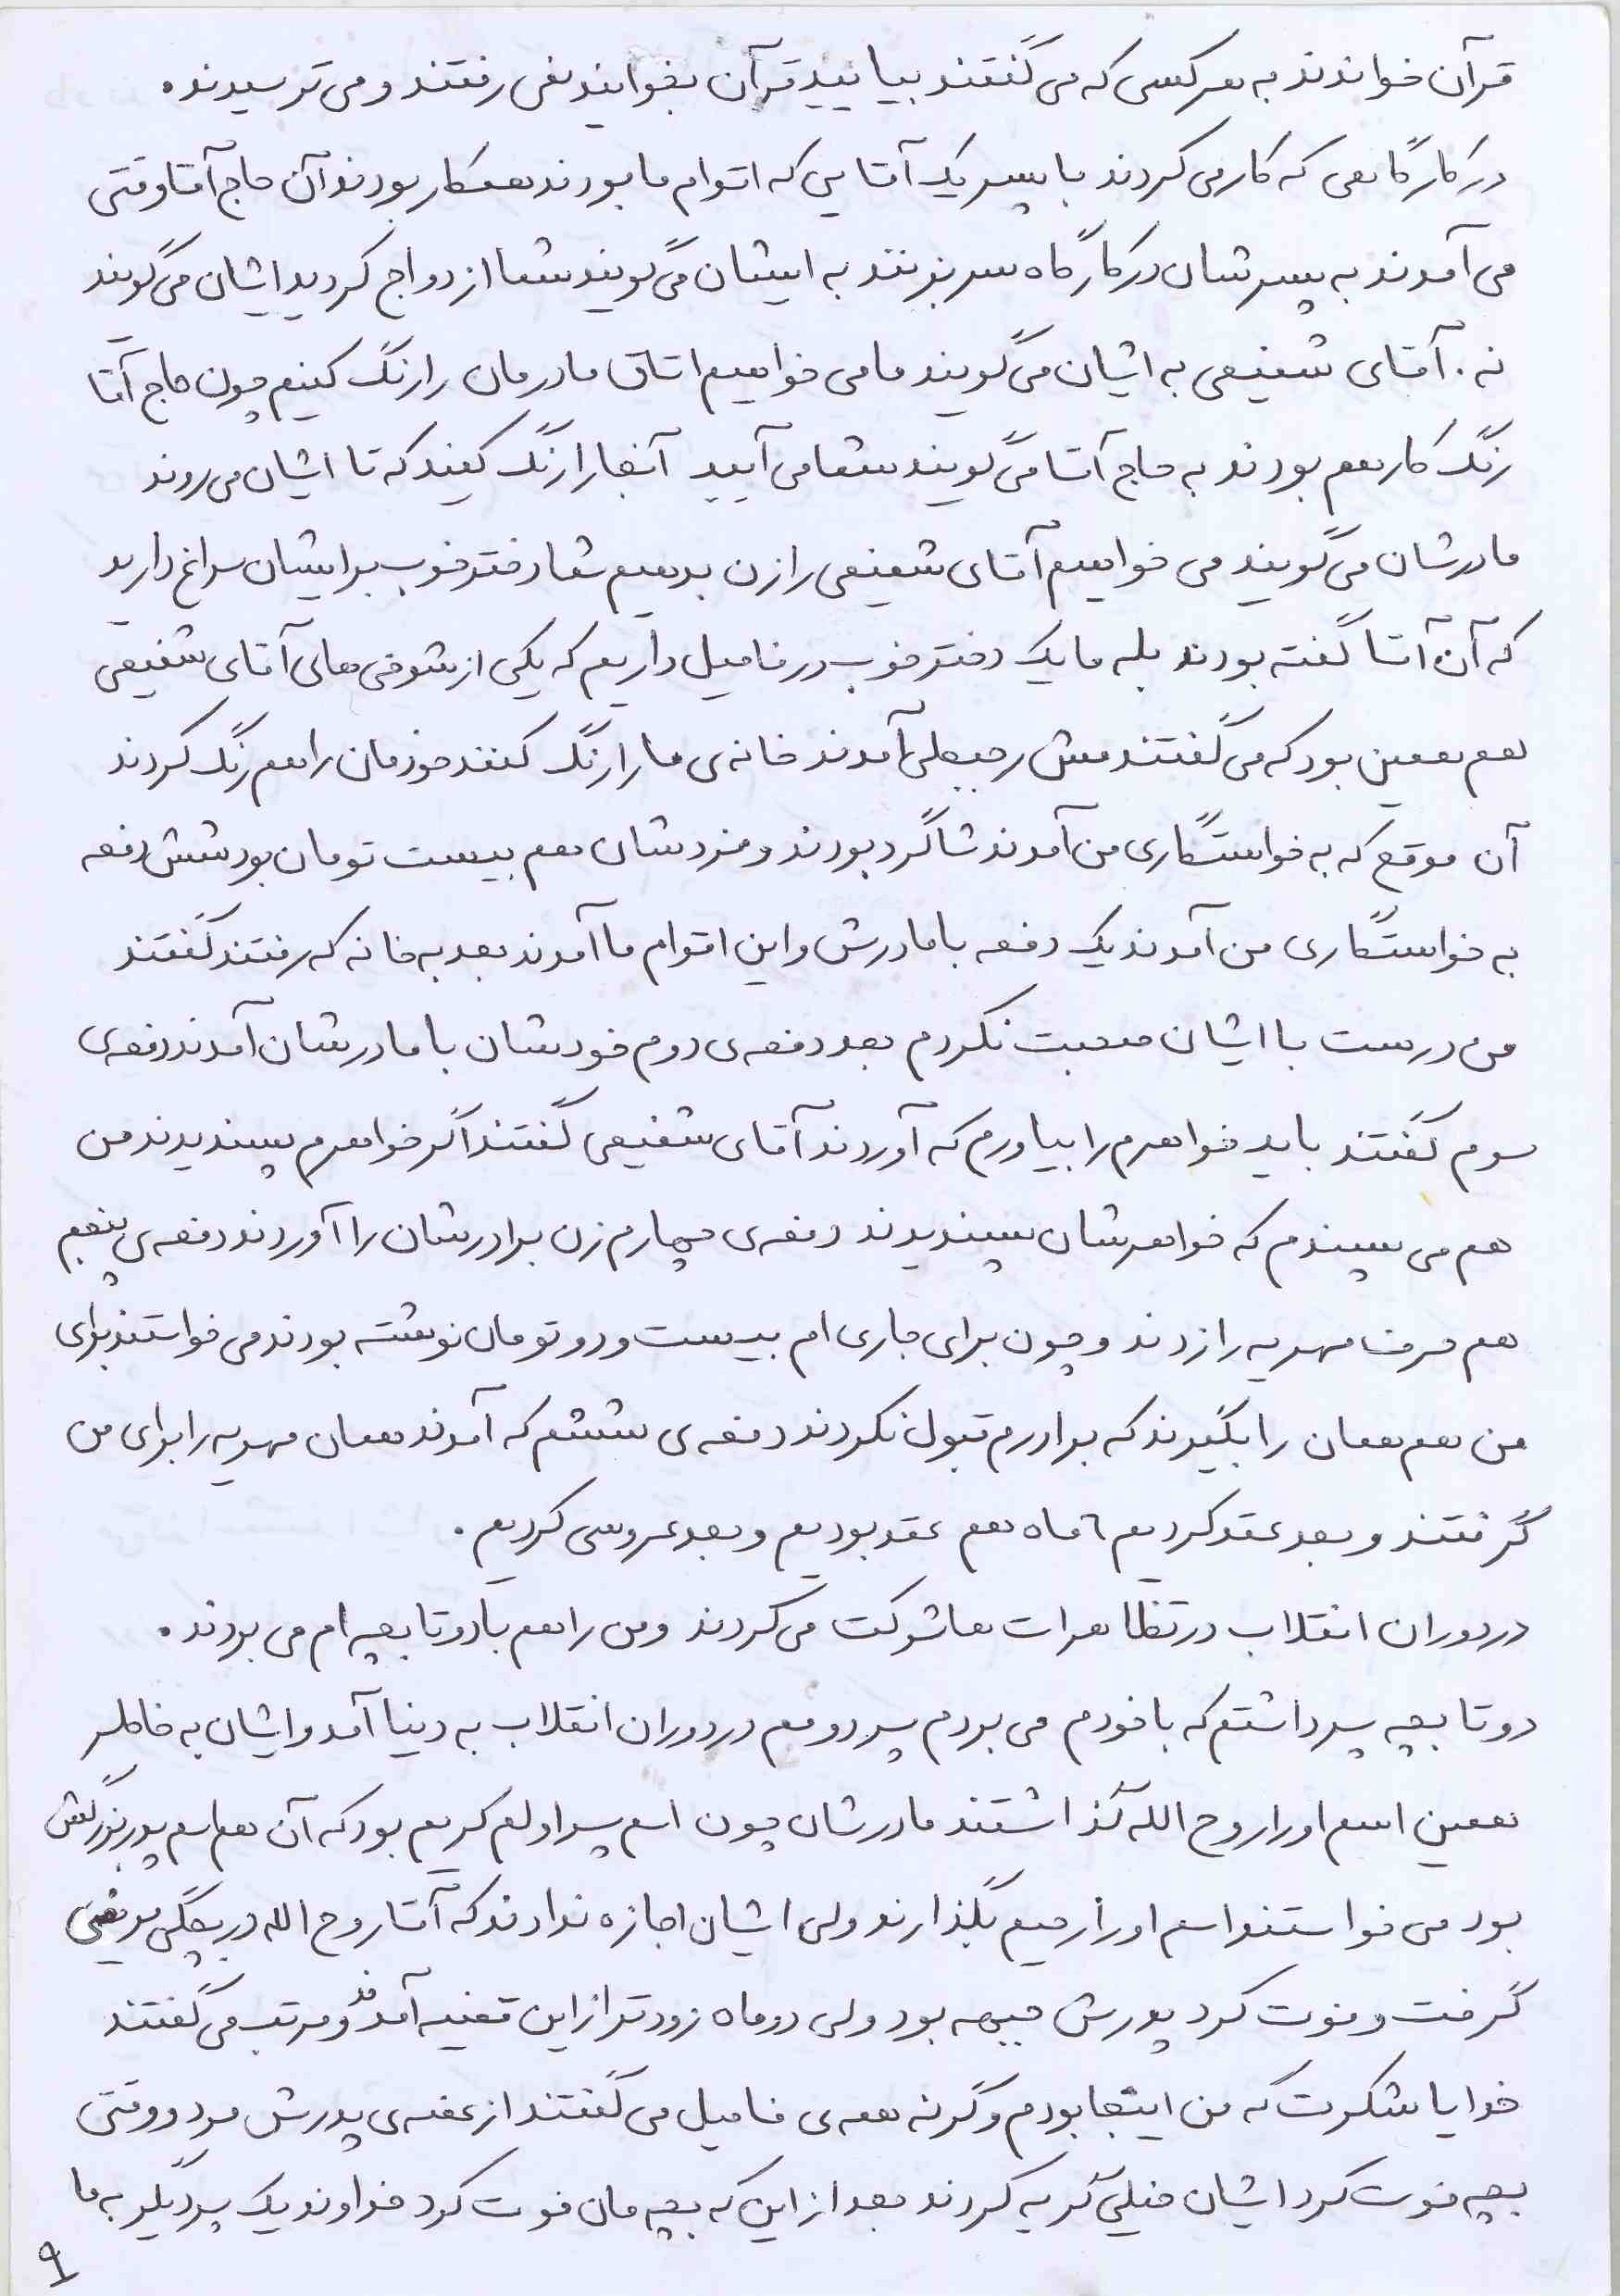 قرآن خواندند به هر کسی که می گفتند بیایید قرآن بخوانید نمی رفتند و می ترسیدند.
در کارگاهی که کار می کردند با پسر یک آقایی که اقوام ما بودند همکار بودند آن حاج آقا وقتی
می آمدند به پسرشان در کارگاه سر بزنند به ایشان می گویند شما ازدواج کردید ایشان می گویند
نه. آقای شفیعی به ایشان می گویند ما می خواهیم اتاق مادرمان را رنگ کنیم چون حاج آقا
رنگ کار هم بودند به حاج آقا می گویند شما می آیید آنجا را رنگ کنید که تا ایشان می روند
مادرشان می گویند می خواهیم آقای شفیعی را زن بدهیم شما دختر خوب برایشان سراغ دارید
که آن آقا گفته بودند بله ما یک دختر خوب در فامیل داریم که یکی از شوخی های آقای شفیعی
هم همین بود که می گفتند مش رجبعلی آمدند خانه ی ما را رنگ کنند خودمان را هم رنگ کردند
آن موقع که به خواستگاری من آمدند شاگرد بودند و مزدشان هم بیست تومان بود شش دفعه
به خواستگاری من آمدند یک دفعه با مادرش و این اقوام ما آمدند بعد به خانه که رفتند گفتند
من درست با ایشان صحبت نکردم بعد دفعه ی دوم خودشان با مادرشان آمدند دفعه ی
سوم گفتند باید خواهرم را بیاورم که آوردند آقای شفیعی گفتند اگر خواهرم پسندیدند من
هم می پسندم که خواهرشان پسندیدند دفعه ی چهارم زن برادرشان را آوردند دفعه ی پنجم
هم حرف مهریه را زدند و چون برای جاری ام بیست و دو تومان نوشته بودند می خواستند برای
من هم همان را بگیرند که برادرم قبول نکردند دفعه ی ششم که آمدند همان مهریه را برای من
گرفتند و بعد عقد کردیم ٦ ماه هم عقد بودیم و بعد عروسی کردیم.
در دوران انقلاب در تظاهرات ها شرکت می کردند و من را هم با دو تا بچه ام می بردند.
دو تا بچه پسر داشتم که با خودم می بردم پسر دومم در دوران انقلاب به دنیا آمد و ایشان به خاطر
همین اسم او را روح الله گذاشتند مادرشان چون اسم پسر اولم کریم بود که آن هم اسم پدربزرگش
بود می خواستند اسم او را رحیم بگذارند ولی ایشان اجازه ندادند که آقا روح الله در بچگی مریضی
گرفت و فوت کرد پدرش جبهه بود ولی دو ماه زودتر از این قضیه آمدند و مرتب می گفتند
خدایا شکرت که من اینجا بودم وگرنه همه ی فامیل می گفتند از غصه ی پدرش مرد و وقتی
بچه فوت کرد ایشان خیلی گریه کردند بعد از این که بچه مان فوت کرد خداوند یک پسر دیگر به ما
۹